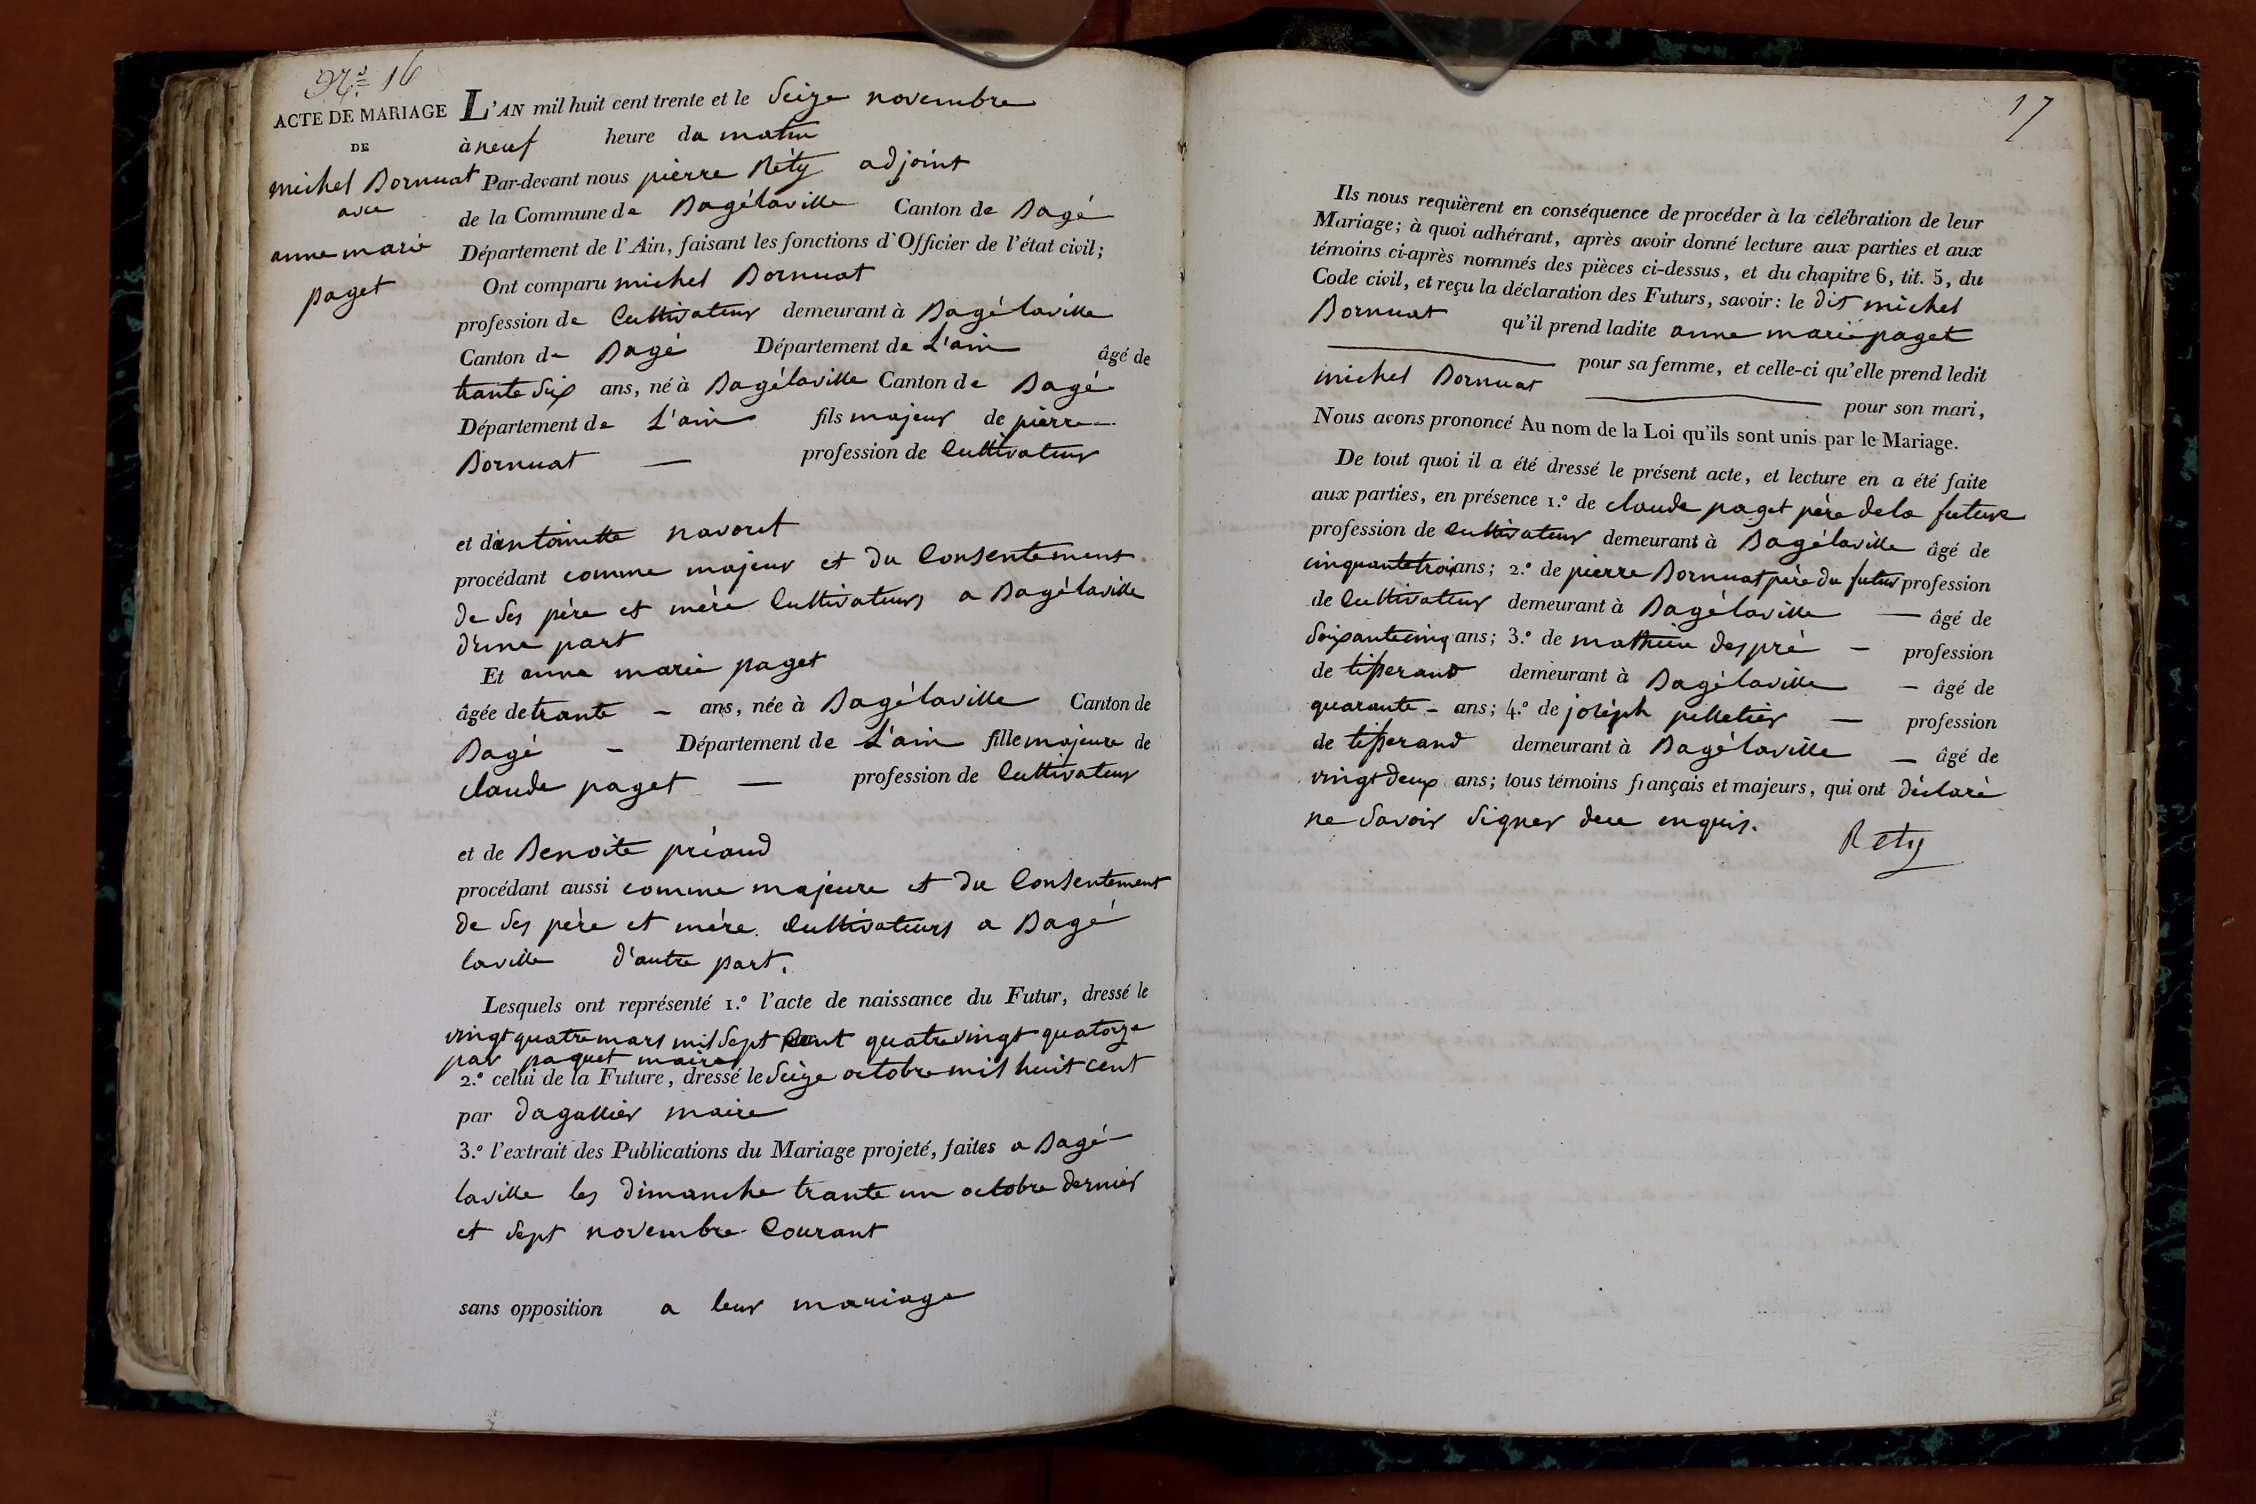 N.º 16
ACTE DE MARIAGE
DE
michel Bornuat
avec
anne marie
paget
L'AN mil huit cent trente et le Seize novembre
à neuf heure du matin
Par-devant nous pierre Réty adjoint
de la Commune de Bagélaville Canton de Bagé
Département de l'Ain, faisant les fonctions d'Officier de l'état civil;
Ont comparu michel Bornuat
profession de Cultivateur demeurant à Bagélaville
Canton de Bagé Département de L'ain âgé de
trante Six ans, né à Bagélaville Canton de Bagé
Département de L'ain fils majeur de pierre
Bornuat — profession de Cultivateur
et d'antoinette navoret
procédant comme majeur et du Consentement
de Ses père et mère Cultivateurs a Bagélaville
d'une part
Et anne marie paget
âgée de trante – ans, née à Bagélaville Canton de
Bagé – Département de L'ain fille majeure de
claude paget — profession de Cultivateur
et de Benoite préaud
procédant aussi comme majeure et du Consentement
de Ses père et mère Cultivateurs a Bagé
laville d'autre part.
Lesquels ont représenté 1.º l'acte de naissance du Futur, dressé le
vingt quatre mars mil Sept Cent quatrevingt quatorze
par paquet maire
2.º celui de la Future, dressé le Seize octobre mil huit cent
par dagallier maire
3.º l'extrait des Publications du Mariage projeté, faites a Bagé
laville les dimanche trante un octobre dernier
et Sept novembre Courant
sans opposition a leur mariage
17
Ils nous requièrent en conséquence de procéder à la célébration de leur
Mariage; à quoi adhérant, après avoir donné lecture aux parties et aux
témoins ci-après nommés des pièces ci-dessus, et du chapitre 6, tit. 5, du
Code civil, et reçu la déclaration des Futurs, savoir: le dit michel
Bornuat qu'il prend ladite anne marie paget
— pour sa femme, et celle-ci qu'elle prend ledit
michel Bornuat — pour son mari,
Nous avons prononcé Au nom de la Loi qu'ils sont unis par le Mariage.
De tout quoi il a été dressé le présent acte, et lecture en a été faite
aux parties, en présence 1.º de claude paget père de la future
profession de Cultivateur demeurant à Bagélaville âgé de
cinquante trois ans; 2.º de pierre Bornuat père du futur profession
de Cultivateur demeurant à Bagélaville — âgé de
Soixante cinq ans; 3.º de mathieu despré – profession
de tisserand demeurant à Bagélaville – âgé de
quarante – ans; 4.º de joseph pelletier — profession
de tisserand demeurant à Bagélaville – âgé de
vingt deux ans; tous témoins français et majeurs, qui ont déclaré
ne Savoir Signer de ce enquis.
Rety